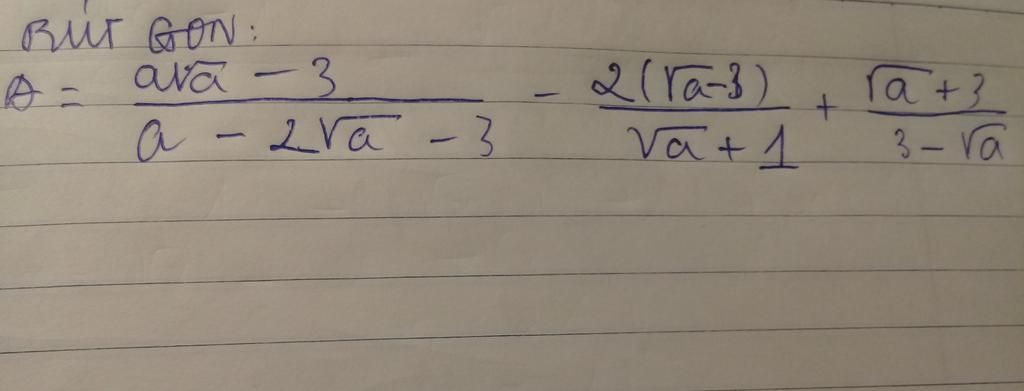 RÚT GỌN:
A = \frac{a\sqrt{a} - 3}{a - 2\sqrt{a} - 3} - \frac{2(\sqrt{a}-3)}{\sqrt{a} + 1} + \frac{\sqrt{a} + 3}{3 - \sqrt{a}}